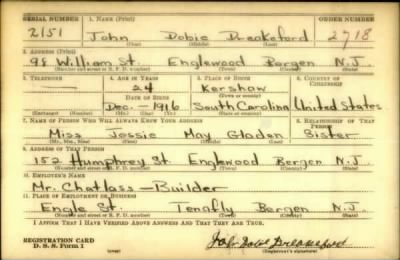 SERIAL NUMBER 1. NAME (Print) ORDER NUMBER
2151 John Dobie Breakeford 2718
(First) (Middle) (Last)
2. ADDRESS (Print)
98 William St. Englewood Bergen N.J.
(Number and street or R. F. D. number) (Town) (County) (State)
3. TELEPHONE 4. AGE IN YEARS 5. PLACE OF BIRTH 6. COUNTRY OF CITIZENSHIP
— 24 Kershaw
DATE OF BIRTH (Town or county)
Dec. — 1916 South Carolina United States
(Exchange) (Number) (Mo.) (Day) (Yr.) (State or country)
7. NAME OF PERSON WHO WILL ALWAYS KNOW YOUR ADDRESS 8. RELATIONSHIP OF THAT PERSON
Miss Jessie May Gladen Sister
(Mr., Mrs., Miss) (First) (Middle) (Last)
9. ADDRESS OF THAT PERSON
152 Humphrey St. Englewood Bergen N.J.
(Number and street or R. F. D. number) (Town) (County) (State)
10. EMPLOYER'S NAME
Mr. Chatlass — Builder
11. PLACE OF EMPLOYMENT OR BUSINESS
Engle St. Tenafly Bergen N.J.
(Number and street or R. F. D. number) (Town) (County) (State)
I AFFIRM THAT I HAVE VERIFIED ABOVE ANSWERS AND THAT THEY ARE TRUE.
REGISTRATION CARD
D. S. S. FORM 1 (over) John Dobie Breakeford
(Registrant's signature)